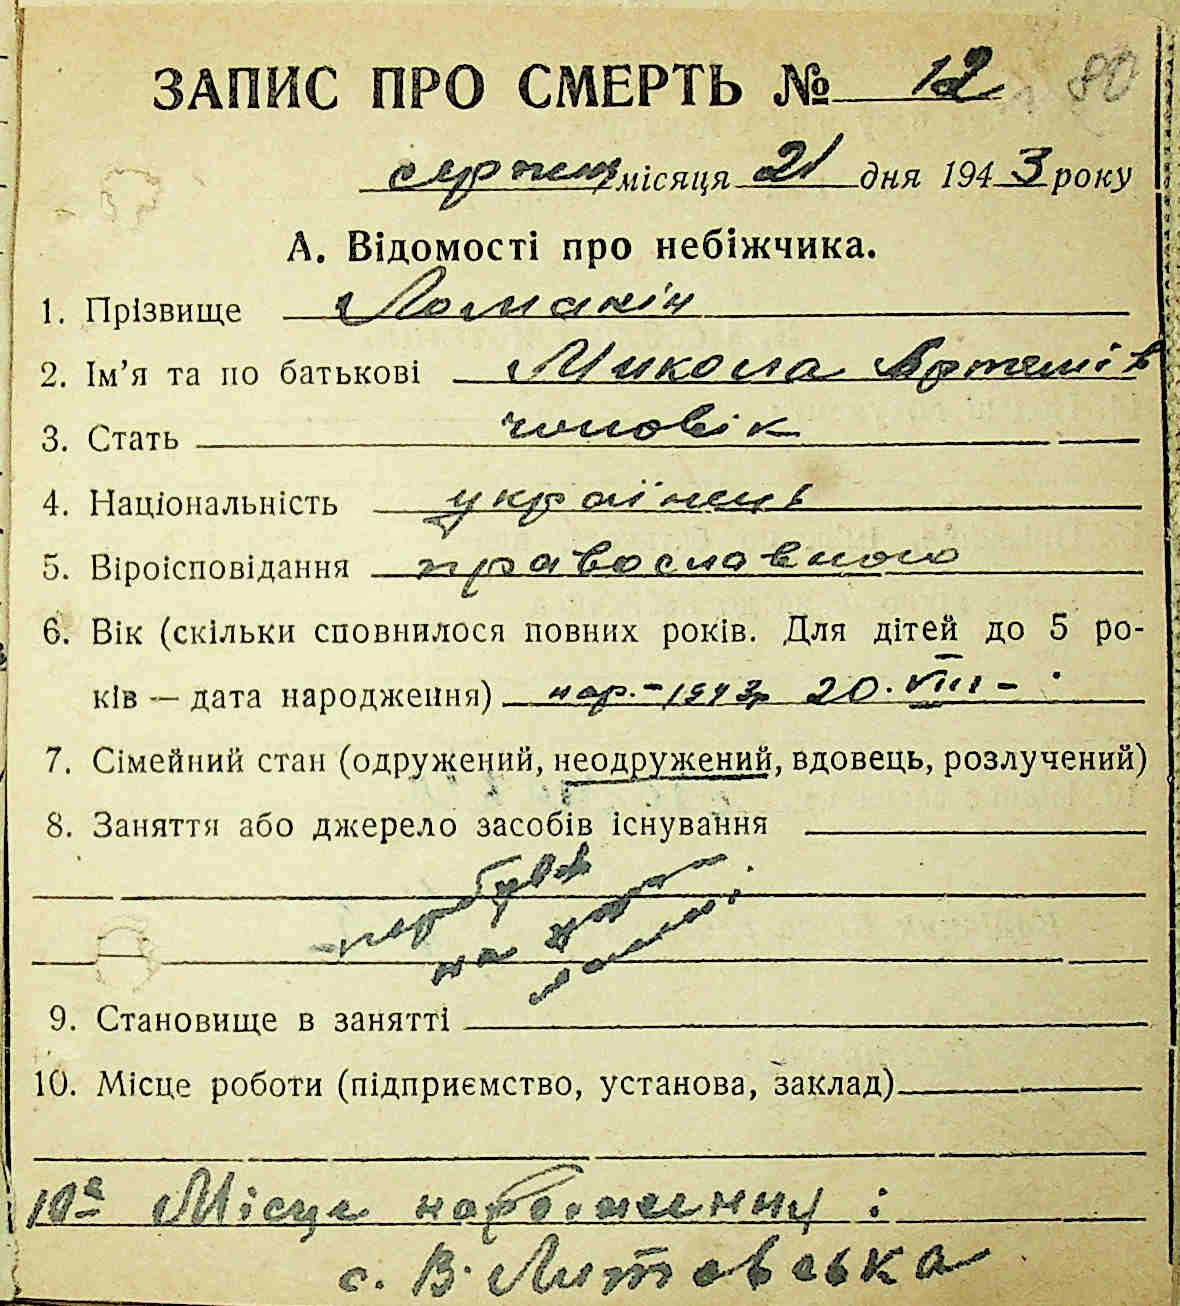 ЗАПИС ПРО СМЕРТЬ № 12 80
серпня місяця 21 дня 1943 року
А. Відомості про небіжчика.
1. Прізвище Ломакін
2. Ім’я та по батькові Микола Артемів
3. Стать чоловік
4. Національність українець
5. Віроісповідання православного
6. Вік (скільки сповнилося повних років. Для дітей до 5 ро-
ків — дата народження) нар. - 1943р 20. VIII -
7. Сімейний стан (одружений, неодружений, вдовець, розлучений)
8. Заняття або джерело засобів існування
перебував
на
9. Становище в занятті
10. Місце роботи (підприємство, установа, заклад)
10а Місце народження:
с. В. Литовська